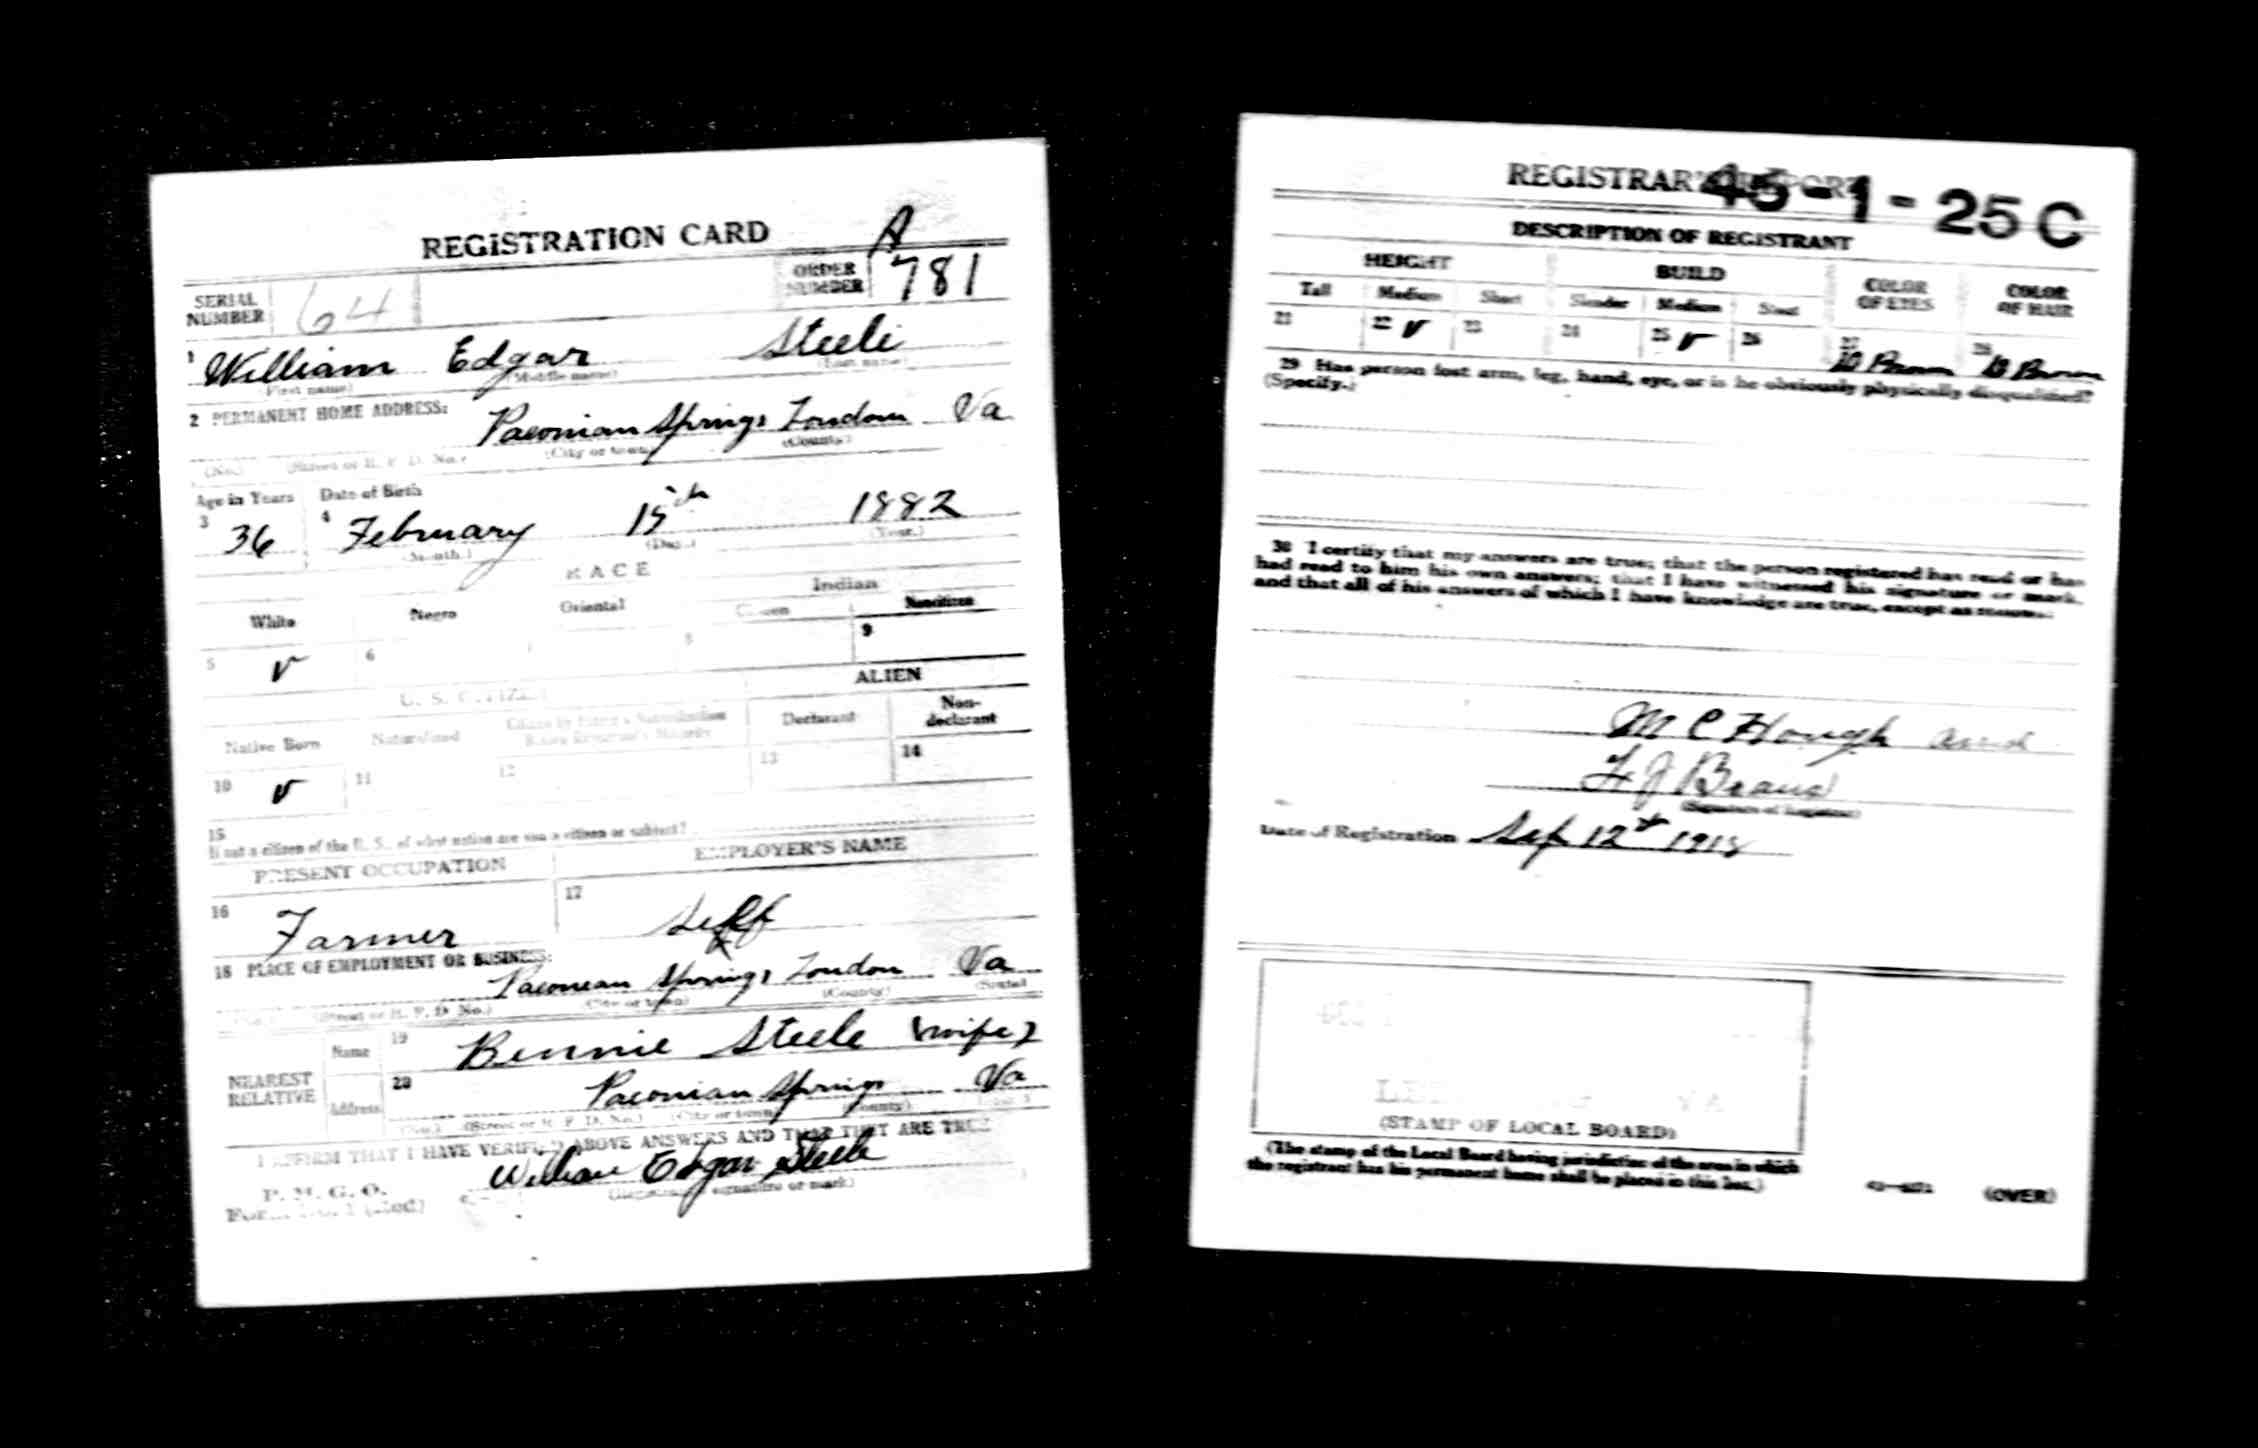 REGISTRATION CARD
SERIAL NUMBER 64 ORDER NUMBER A 781
1 William Edgar Steele
(First name) (Middle name) (Last name)
2 PERMANENT HOME ADDRESS:
Paeonian Springs Loudoun Va
(No.) (Street or R. F. D. No.) (City or town) (County)
Age in Years Date of Birth
3 36 4 February 15th 1882
(Month.) (Day.) (Year.)
RACE
White Negro Oriental Indian
Citizen Noncitizen
5 v 6 8 9
U. S. CITIZEN ALIEN
Native Born Naturalized Citizen by Father's Naturalization Before Registrant's Majority Declarant Non-declarant
10 v 11 12 13 14
15
If not a citizen of the U. S., of what nation are you a citizen or subject?
PRESENT OCCUPATION EMPLOYER'S NAME
16 Farmer 17 Self
18 PLACE OF EMPLOYMENT OR BUSINESS:
Paeonean Springs Loudon Va
(No.) (Street or R. F. D. No.) (City or town) (County) (State)
NEAREST RELATIVE Name 19 Bennie Steele (wife)
Address 20 Paeonian Springs Va
(No.) (Street or R. F. D. No.) (City or town) (County) (State)
I AFFIRM THAT I HAVE VERIFIED ABOVE ANSWERS AND THAT THEY ARE TRUE
P. M. G. O.
William Edgar Steele
(Registrant's signature or mark)
REGISTRAR'S REPORT
45-1-25 C
DESCRIPTION OF REGISTRANT
HEIGHT BUILD COLOR OF EYES COLOR OF HAIR
Tall Medium Short Slender Medium Stout
21 22 v 23 24 25 v 26 27 D Brown 28 D Brown
29 Has person lost arm, leg, hand, eye, or is he obviously physically disqualified?
(Specify.)
30 I certify that my answers are true; that the person registered has read or has
had read to him his own answers; that I have witnessed his signature or mark,
and that all of his answers of which I have knowledge are true, except as follows:
M C Hough and
(Signature of Registrar)
Date of Registration Sep 12th 1918
(STAMP OF LOCAL BOARD)
(The stamp of the Local Board having jurisdiction of the area in which
the registrant has his permanent home shall be placed in this box.)
(OVER)